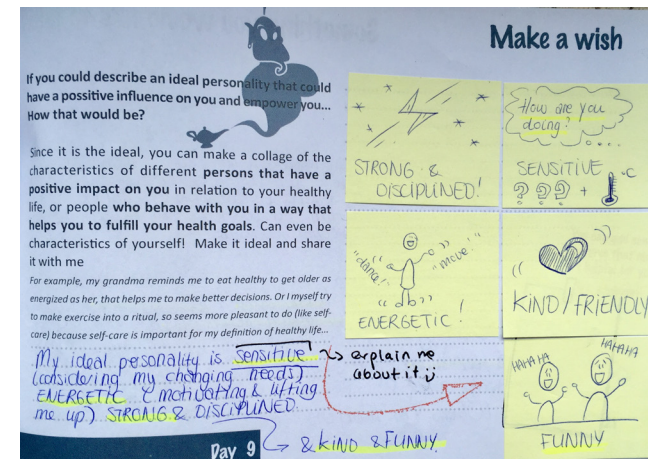 Make a wish
If you could describe an ideal personality that could
have a possitive influence on you and empower you...
How that would be?
Since it is the ideal, you can make a collage of the
characteristics of different persons that have a
positive impact on you in relation to your healthy
life, or people who behave with you in a way that
helps you to fulfill your health goals. Can even be
characteristics of yourself! Make it ideal and share
it with me
For example, my grandma reminds me to eat healthy to get older as
energized as her, that helps me to make better decisions. Or I myself try
to make exercise into a ritual, so seems more pleasant to do (like self-
care) because self-care is important for my definition of healthy life...
My ideal personality is sensitive
(considering my changing needs)
ENERGETIC (motivating & lifting
me up) STRONG & DISCIPLINED
& KIND & FUNNY.
explain me
about it
Day 9
STRONG &
DISCIPLINED!
How are you
doing?
SENSITIVE
??? + °C
"dance!"
"move!"
ENERGETIC!
KIND/FRIENDLY
HAHAHA
HAHAHA
FUNNY